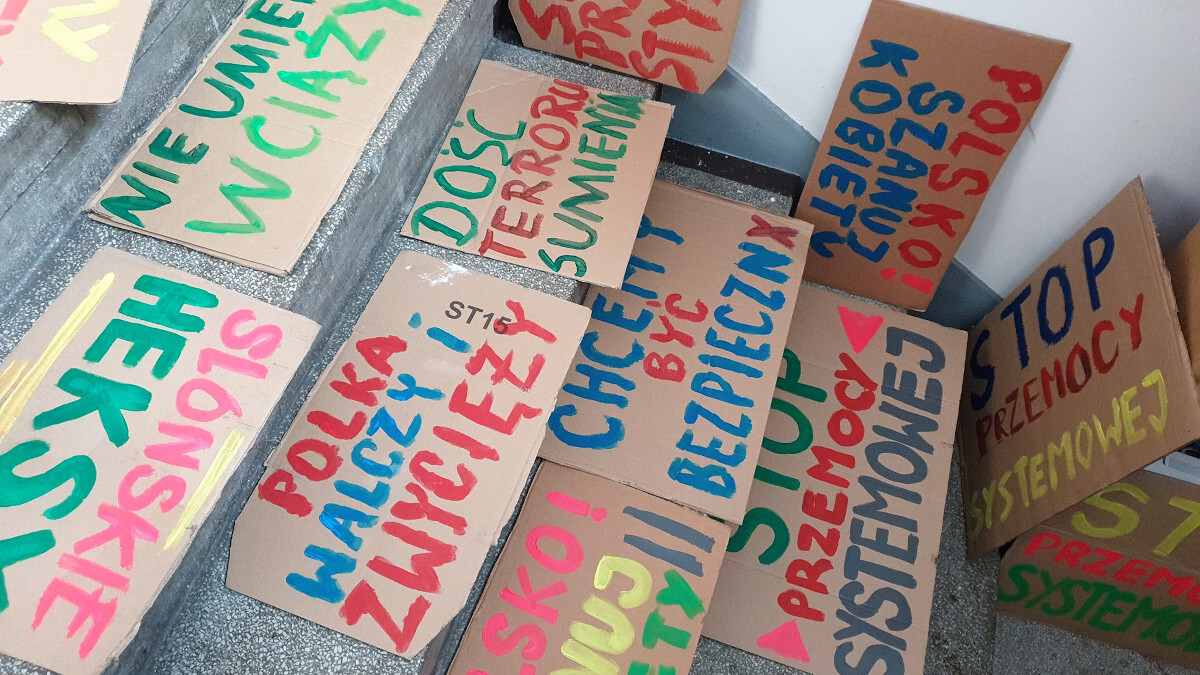 NIE UMIE
W CIĄŻY
DOŚĆ
TERRORU
SUMIENIA
POLSKO!
SZANUJ
KOBIETY
SLÓNSKIE
HEKSY
ST15
POLKA
WALCZY I
ZWYCIĘŻY
CHCEMY
BYĆ
BEZPIECZNX
STOP
PRZEMOCY
SYSTEMOWEJ
STOP
PRZEMOCY
SYSTEMOWEJ
LSKO!
NUJ
ETY
ST
PRZEM
SYSTEMO